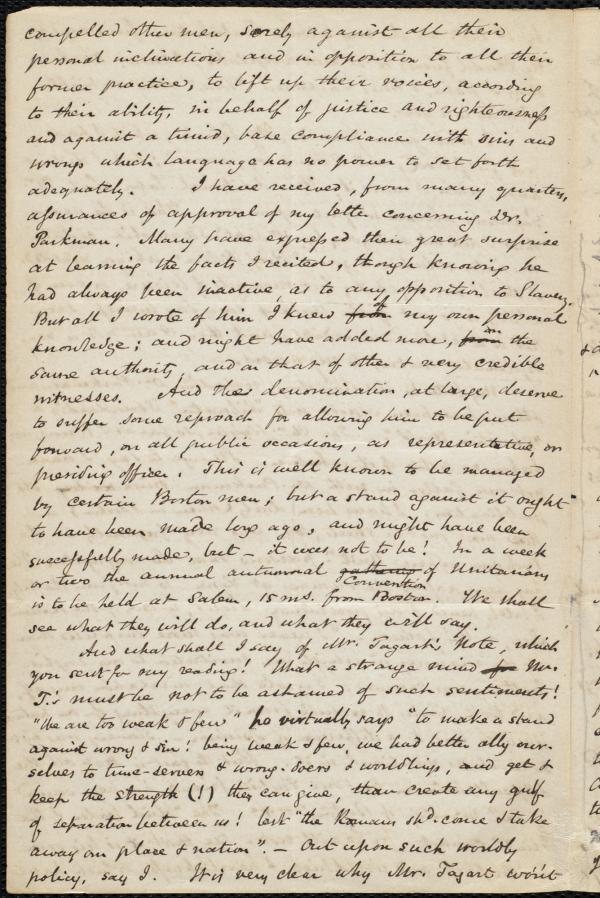 compelled other men, sorely against all their
personal inclinations and in opposition to all their
former practice, to lift up their voices, according
to their ability, in behalf of justice and righteousness
and against a timid, base compliance with sins and
wrongs which language has no power to set forth
adequately. I have received, from many quarters,
assurances of approval of my letter concerning Dr.
Parkman. Many have expressed their great surprise
at learning the facts I recited, though knowing he
had always been inactive, as to any opposition to Slavery.
But all I wrote of him I knew from of my own personal
knowledge; and might have added more, from on the
same authority, and on that of other & very credible
witnesses. And the denomination, at large, deserve
to suffer some reproach for allowing him to be put
forward, on all public occasions, as representative, or
presiding officer. This is well known to be managed
by certain Boston men; but a stand against it ought
to have been made long ago, and might have been
successfully made, but – it was not to be! In a week
or two the annual autumnal gathering Convention of Unitarians
is to be held at Salem, 15 ms. from Boston. We shall
see what they will do, and what they will say.
And what shall I say of Mr. Tagart's Note, which
you sent for my reading! What a strange mind for Mr.
T.'s must be not to be ashamed of such sentiments!
"We are too weak & few" he virtually says "to make a stand
against wrong & sin! being weak & few, we had better ally our-
selves to time-servers & wrong-doers & worldlings, and get &
keep the strength (!) they can give, than create any gulf
of separation between us! lest "the Romans shd. come & take
away our place & nation". – Out upon such worldly
policy, say I. It is very clear why Mr. Tagart won't